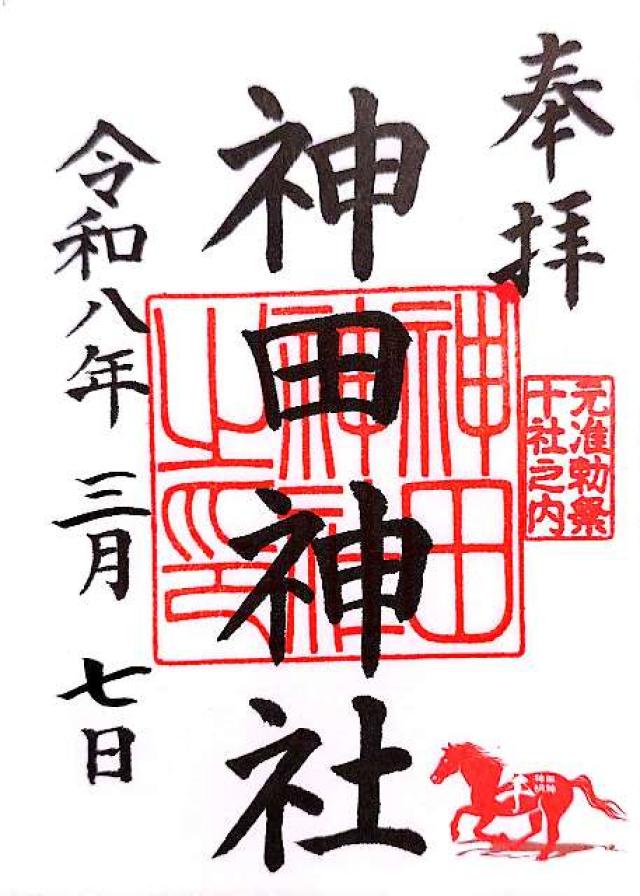 奉拝
元准勅祭
十社之内
神田神社
神田
神社
之印
令和八年 三月 七日
午